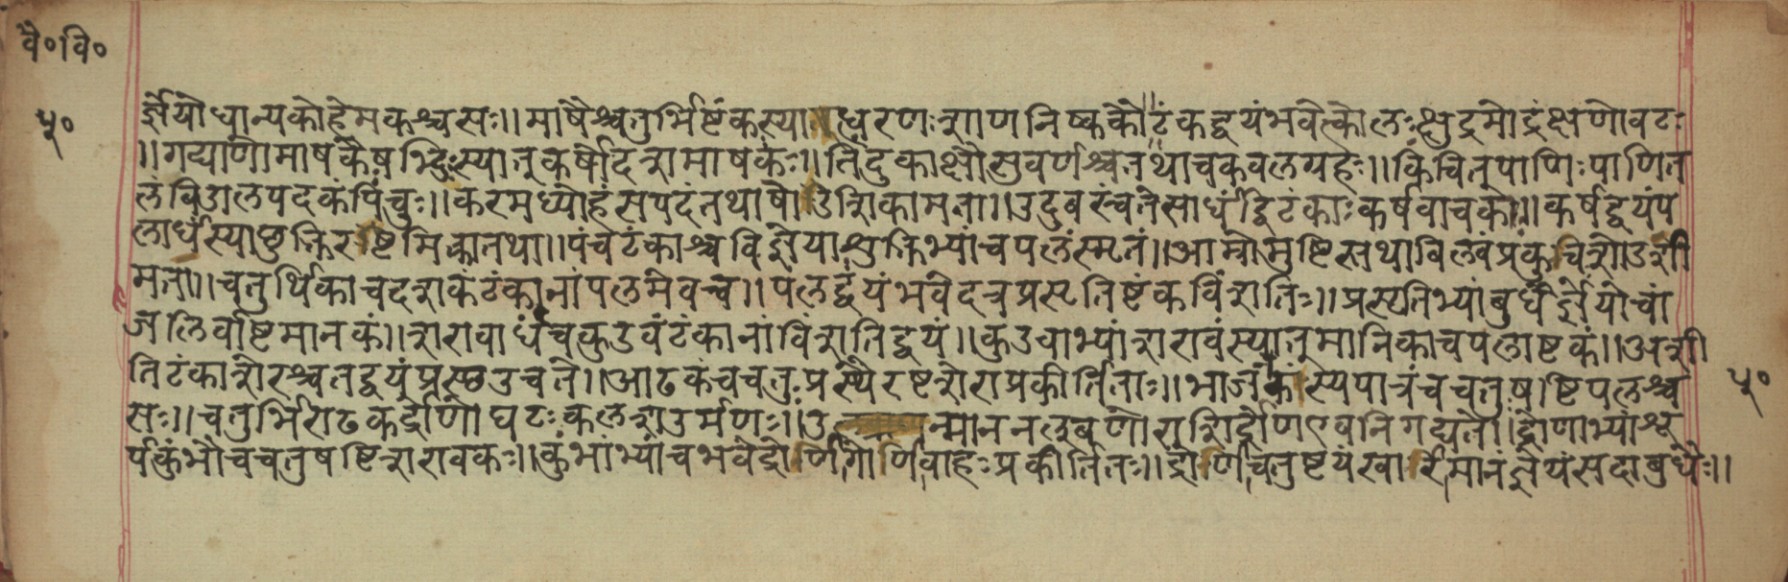 वै॰वि॰
५०
र्ज्ञेयोधान्यकोहेमकश्चसः॥माषैश्चतुर्भिष्टंकस्या धरणःशाणनिष्ककौ॥टंकद्वयंभवेत्कोलःक्षुद्रमोद्रंक्षणोवटः
॥गद्याणोमाषकैषभ्द्रिःस्यात्कर्षोदशमाषकः॥तिंदुकाक्षौसुवर्णश्चतथाचकवलग्रहः॥किंचित्पाणिःपाणित
लंबिडालपदकंपिंचुः॥करमध्योहंसपदंतथाषोडशिकामता॥उदुंबरंचतेसार्धद्विटंकाःकर्षवाचकाः॥कर्षद्वयंप
लार्धंस्याछुक्तिरष्टमिकातथा॥पंचटंकाश्चविज्ञेयाशुक्तिभ्यांचपलंस्मृतं॥आम्रोमुष्टिस्तथाबिल्वंप्रकुंचिषोडशी
मता॥चतुर्थिकाचदशकंटंकानांपलमेवच॥पलद्वयंभवेदत्रप्रसृतिष्टंकविंशतिः॥प्रसृतिभ्यांबुधैर्ज्ञेयोचां
जलिर्वाष्टमानकं॥शरावार्धंचकुडवंटंकानांविंशतिद्वयं॥कुडवाभ्यांशरावंस्यात्मानिकाचपलाष्टकं॥अशी
तिटंकाशेरश्चतद्वयंप्रस्छउचते॥आढकंचचतुःप्रस्थैरष्टशेराप्रकीर्तिताः॥भाजंकांस्यपात्रंचचतुषष्टिपलश्च
सः॥चतुर्भिराढकद्रोणोघटःकलशउर्मणः॥उ न्मानननल्बणोराशिर्द्रोणएवनिगद्यते॥द्रोणाभ्यांशू
र्पकुंभौचचतुषष्टिशरावकः॥कुंभांभ्यांचभवेद्रोणिगोणिवाहःप्रकीर्तितः॥द्रोणिचतुष्टयंखारिमानंज्ञेयंसदाबुधैः॥
५०